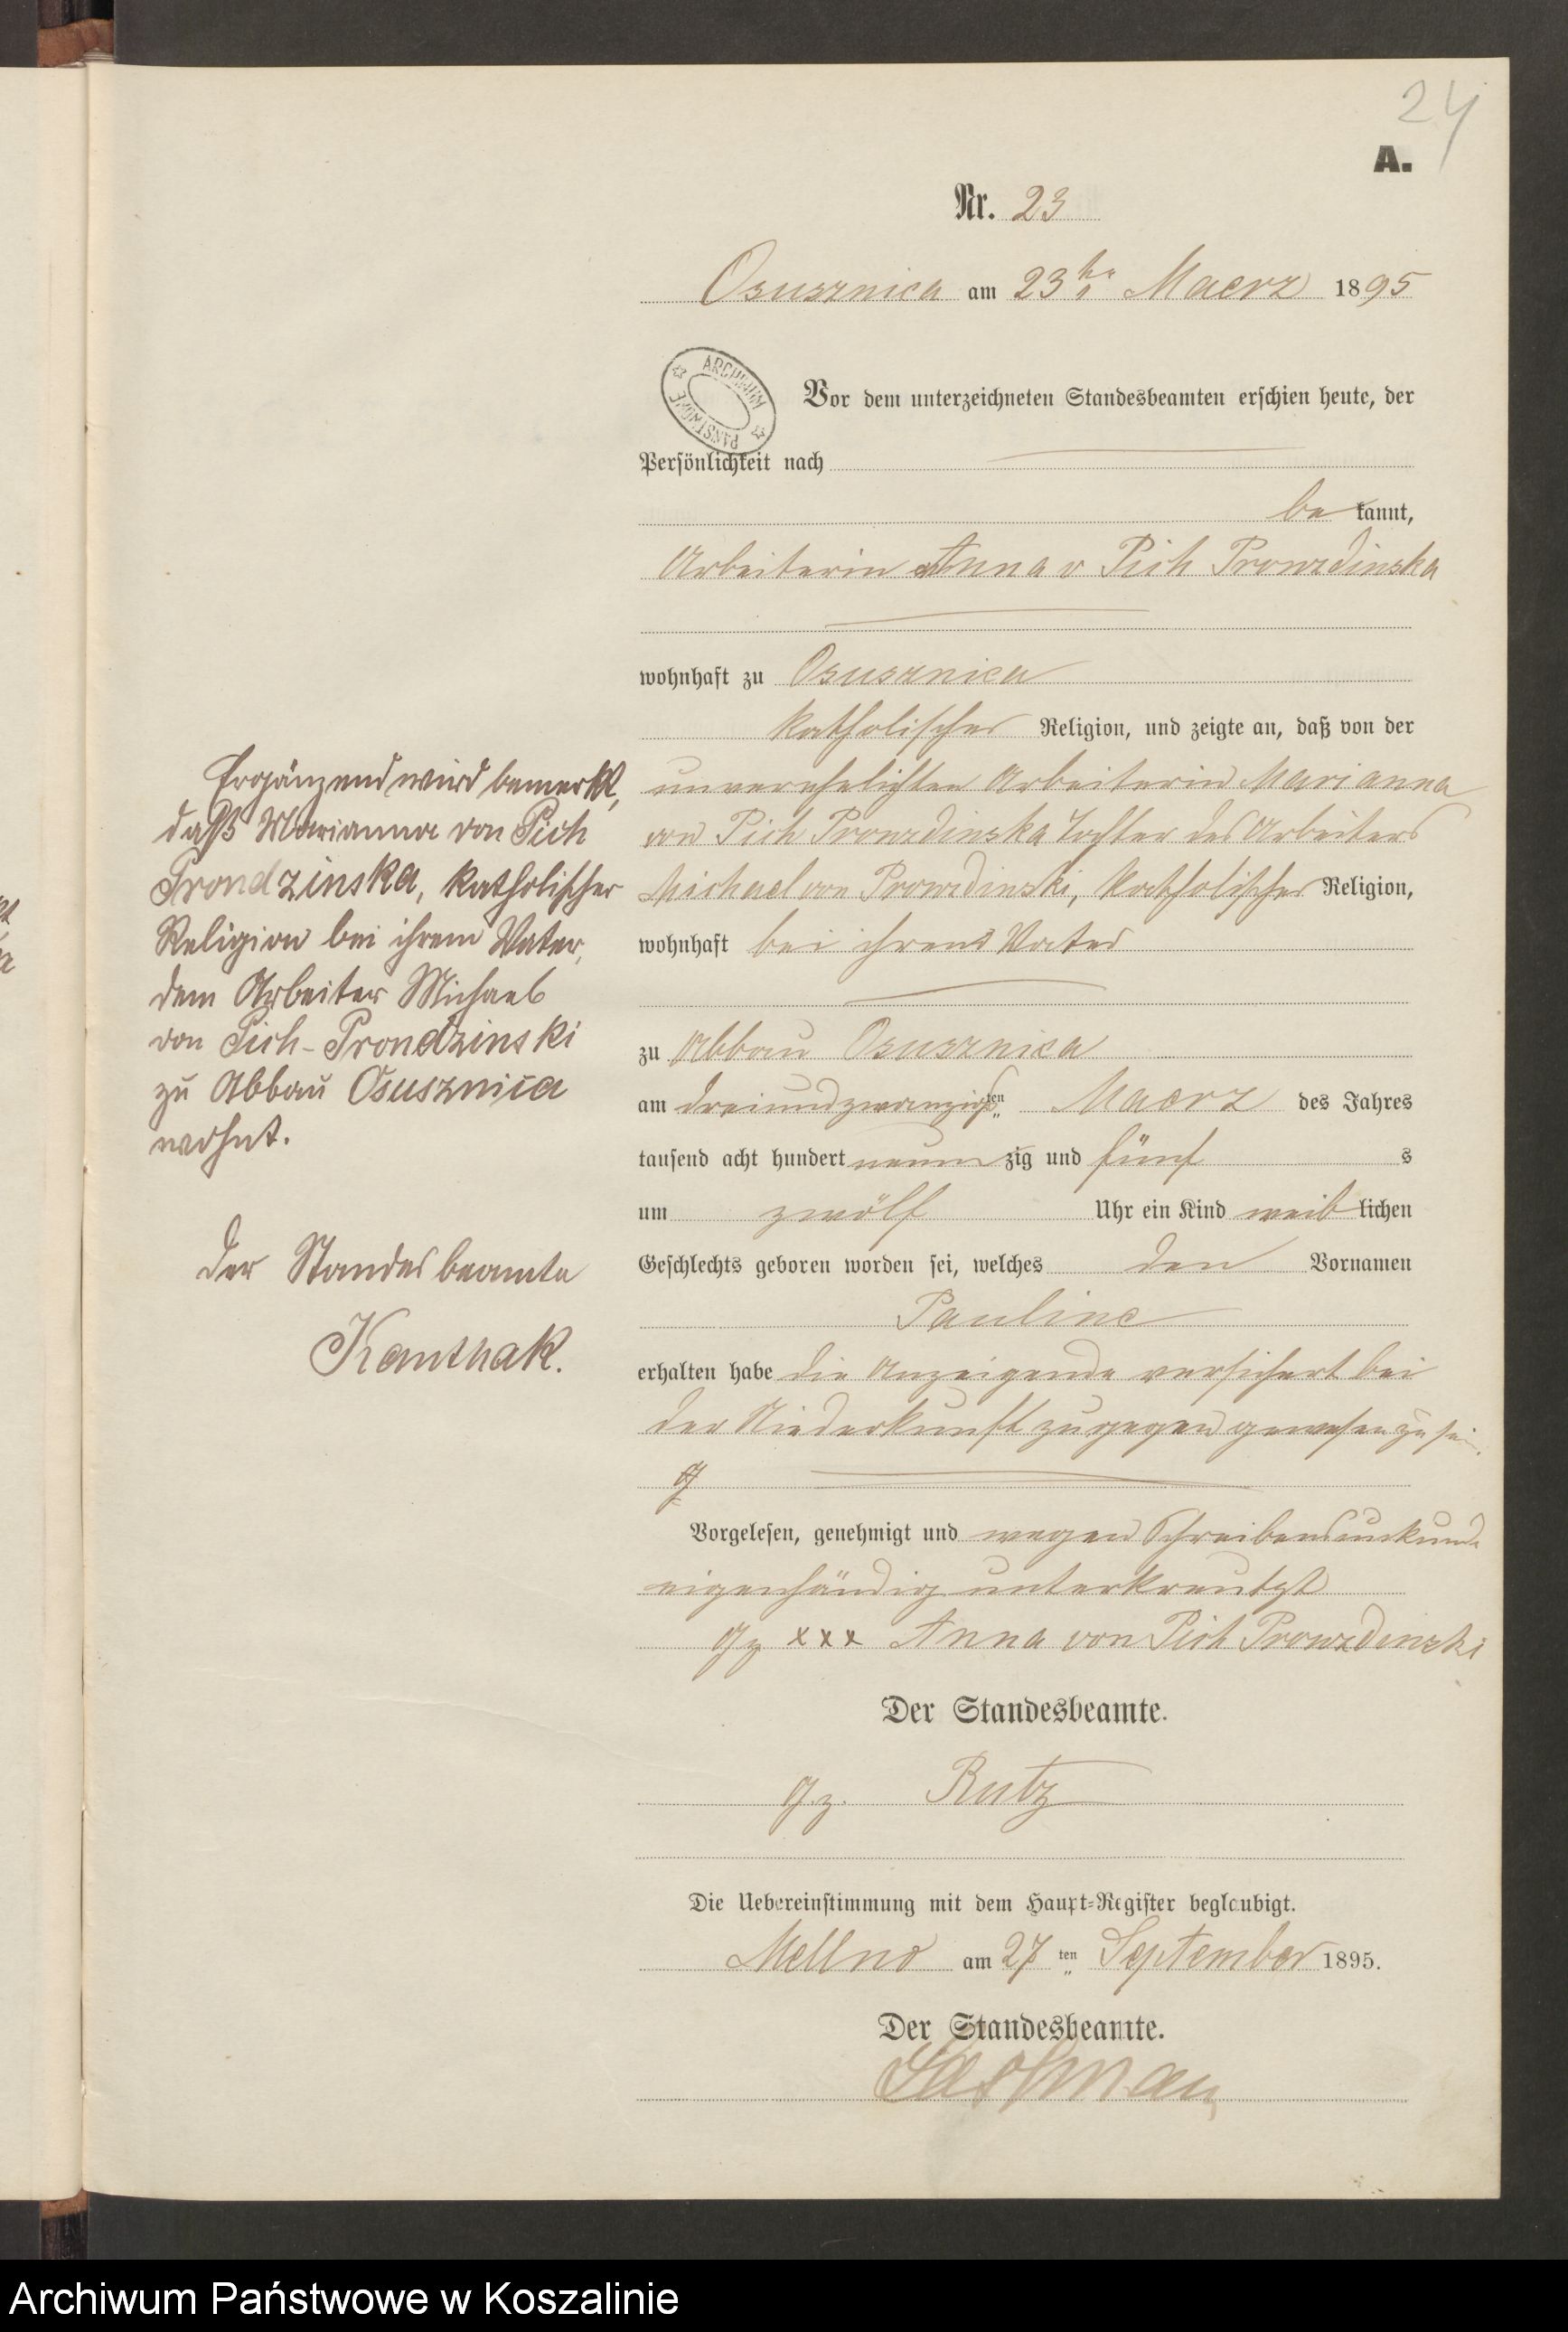 24
A.
Nr. 23
Osusznica am 23ten Maerz 1895
ARCHIWUM PAŃSTWOWE
Vor dem unterzeichneten Standesbeamten erschien heute, der
Persönlichkeit nach
be kannt,
Arbeiterin Anna v Pich Prondzinska
wohnhaft zu Osusznica
katholischer Religion, und zeigte an, daß von der
unverehelichten Arbeiterin Marianna
von Pich Prondzinska Tochter des Arbeiters
Michael von Prondzinski, katholischer Religion,
wohnhaft bei ihrem Vater
zu Abbau Osusznica
am dreiundzwanzigsten Maerz des Jahres
tausend acht hundert neunzig und fünf s
um zwölf Uhr ein Kind weiblichen
Geschlechts geboren worden sei, welches den Vornamen
Pauline
erhalten habe die Anzeigende versichert bei
der Niederkunft zugegen gewesen zu sei
Vorgelesen, genehmigt und wegen Schreibensunkunde
eigenhändig unterkreutzt
gz xxx Anna von Pich Prondzinski
Der Standesbeamte.
g.z. Rutz
Die Uebereinstimmung mit dem Haupt-Register beglaubigt.
Mellno am 27ten September 1895.
Der Standesbeamte.
Ergänzend wird bemerkt,
daß Marianna von Pich
Prondzinska, katholischer
Religion bei ihrem Vater,
dem Arbeiter Michael
von Pich-Prondzinski
zu Abbau Osusznica
wohnt.
Der Standesbeamte
Kanthak.
Archiwum Państwowe w Koszalinie